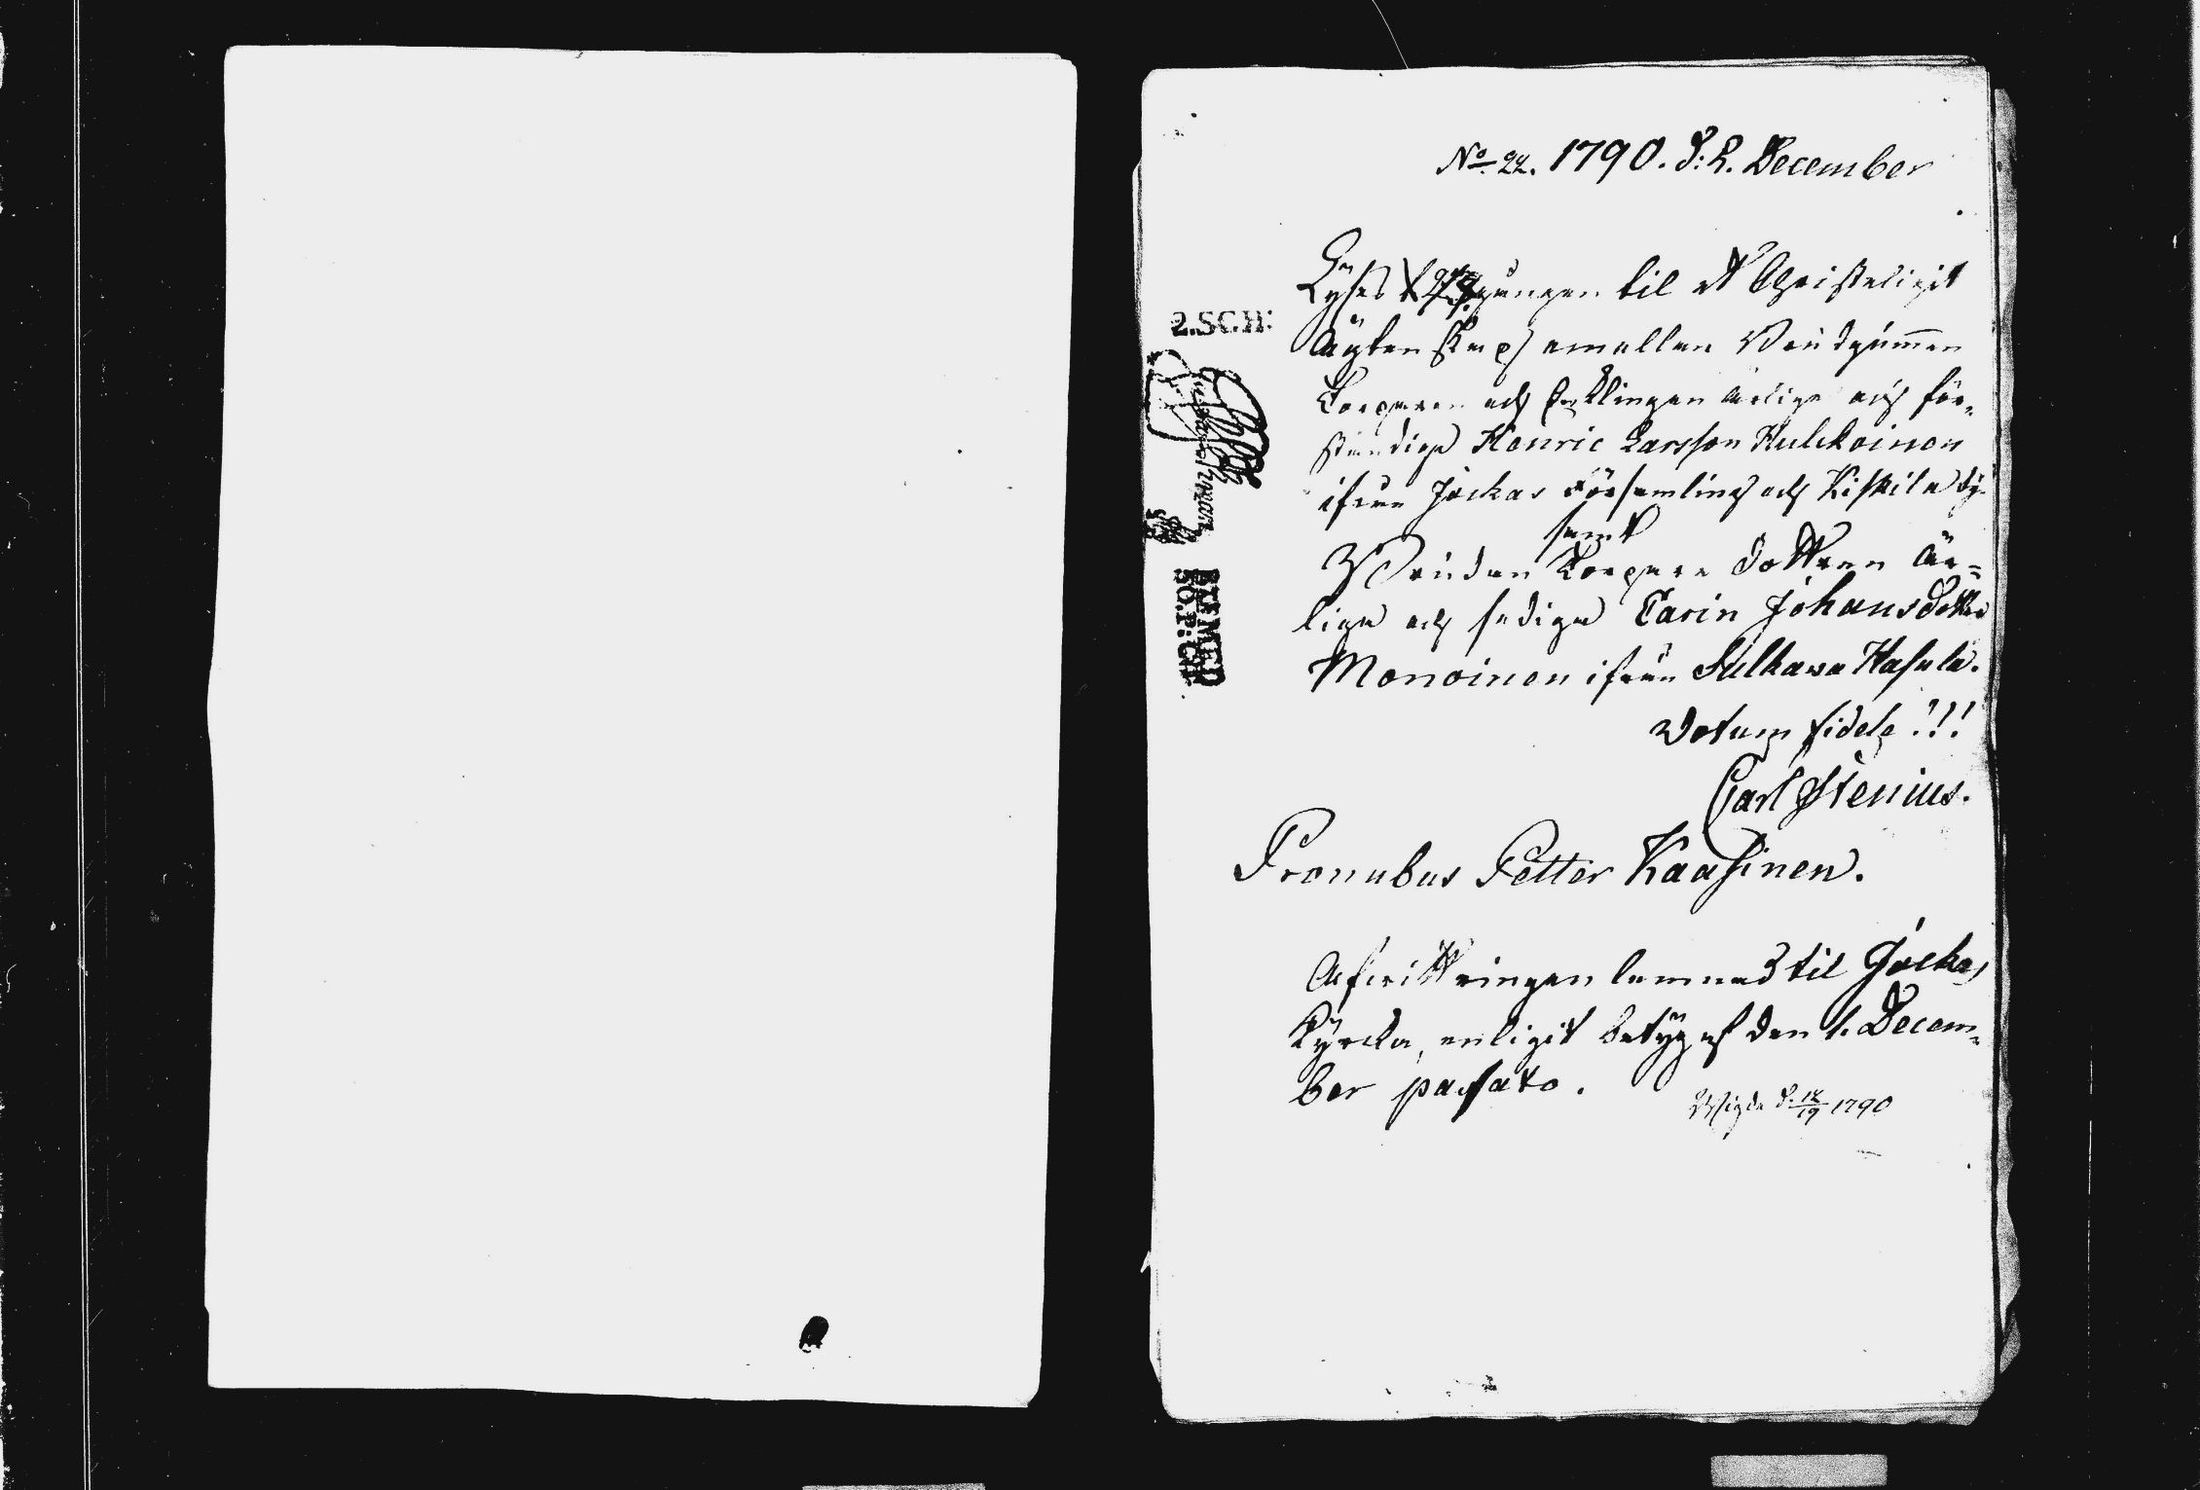 No. 22. 1790. D. 2. December
Lyses gången til et Christeligit
Ägtenskap emellan Brudgummen
Torparen och Enklingen ärlige och för-
ståndige Henric Larsson Hulckoinen
ifrån Jockas Församling och Kiskila by
samt
Bruden Torpare dottren är-
liga och sediga Carin Johansdotter
Monoinen ifrån Sulkava Hasula.
Votum fidele!!!
Carl Stenius.
Pronubus Petter Kaasinen.
Afvittringen lemnad til Jockas
Kyrcka, enligit betyg af den 1. Decem-
ber passato.
Wigde d. 12/19 1790
2.SC.H: